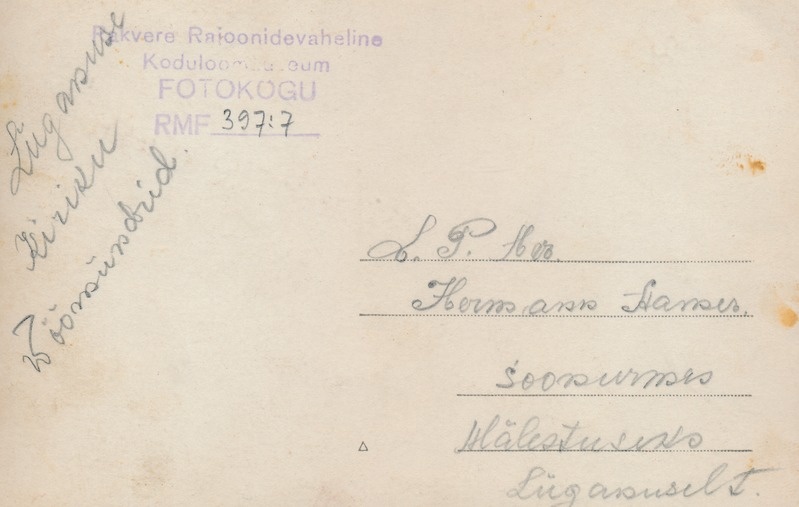 Rakvere Rajoonidevaheline
Koduloomuuseum
FOTOKOGU
RMF 397:7
Lüganuse
Kiriku
Wöörsündrid.
L. P. Hr.
Hermann Hanser.
Soonurmes
Mälestuseks
Lüganuselt.